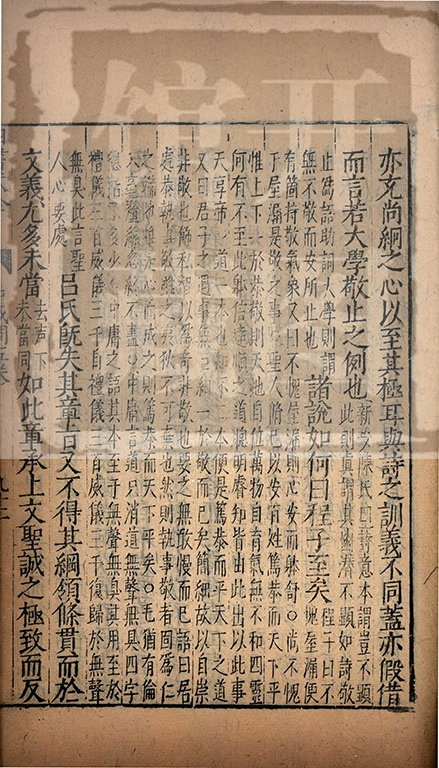 亦充尚絅之心以至其極耳與詩之訓義不同蓋亦假借
而言若大學敬止之例也新安陳氏曰詩意本謂豈不顯
此則真謂其幽深不顯如詩敬
止字語助詞大學則謂
無不敬而安所止也
諸說如何曰程子至矣程子曰不
愧屋漏便
有箇持敬氣象又曰不愧屋漏則心安而體舒○尚不愧
于屋漏是敬之事○聖人脩己以安百姓篤恭而天下平
惟上下一於恭敬則天地自位萬物自育氣無不和四靈
何有不至此體信達順之道聰明睿知皆由此出以此事
天享帝○道一本也知不二本便是篤恭而平天下之道
又曰君子之遇事無巨細一於敬而已矣簡細故以自崇
非敬也飾私智以為奇非敬也要之無敢慢而已語曰居
處恭執事敬雖之夷狄不可棄也然則執事敬者固為仁
之端也推是心而成之則篤恭而天下平矣○毛猶有倫
入毫釐絲忽終不盡○中庸言道只消道無聲無臭四字
總括了多少○中庸之語其本至于無聲無臭其用至於
禮儀三百威儀三千自禮儀三百威儀三千復歸於無聲
無臭此言聖
人心要處
呂氏既失其章旨又不得其綱領條貫而於
文義尤多未當去聲下
未當同
如此章承上文聖誠之極致而反